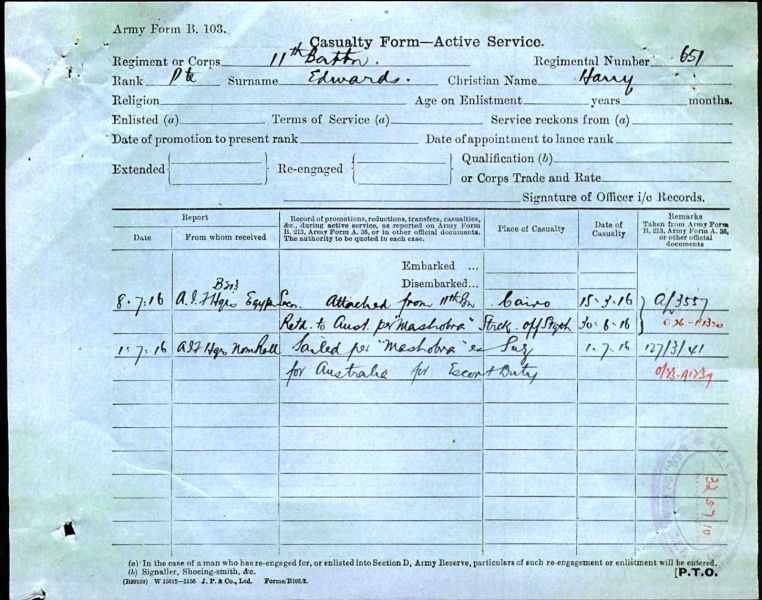 Army Form B. 103.
Casualty Form—Active Service.
Regiment or Corps 11th Battn. Regimental Number 651
Rank Pte Surname Edwards. Christian Name Harry
Religion Age on Enlistment years months.
Enlisted (a) Terms of Service (a) Service reckons from (a)
Date of promotion to present rank Date of appointment to lance rank
Extended Re-engaged Qualification (b)
or Corps Trade and Rate
Signature of Officer i/c Records.
Report
Date From whom received
Record of promotions, reductions, transfers, casualties,
&c., during active service, as reported on Army Form
B. 213, Army Form A. 36, or in other official documents.
The authority to be quoted in each case.
Place of Casualty
Date of
Casualty
Remarks
Taken from Army Form
B. 213, Army Form A. 36,
or other official
documents
Embarked ...
Disembarked ...
8.7.16 A.I.F Hqrs Egypt Attached from 11th Bn Cairo 15.3.16 A/3557
Retd. to Aust per "Mashobra" Struck off Stgth 30.6.16
1.7.16 AIF Hqrs Nom Roll Sailed per "Mashobra" ex Suez 1.7.16 127/3/41
for Australia for Escort Duty
(a) In the case of a man who has re-engaged for, or enlisted into Section D, Army Reserve, particulars of such re-engagement or enlistment will be entered.
(b) Signaller, Shoeing-smith, &c.
[P.T.O.
J. P. & Co., Ltd.